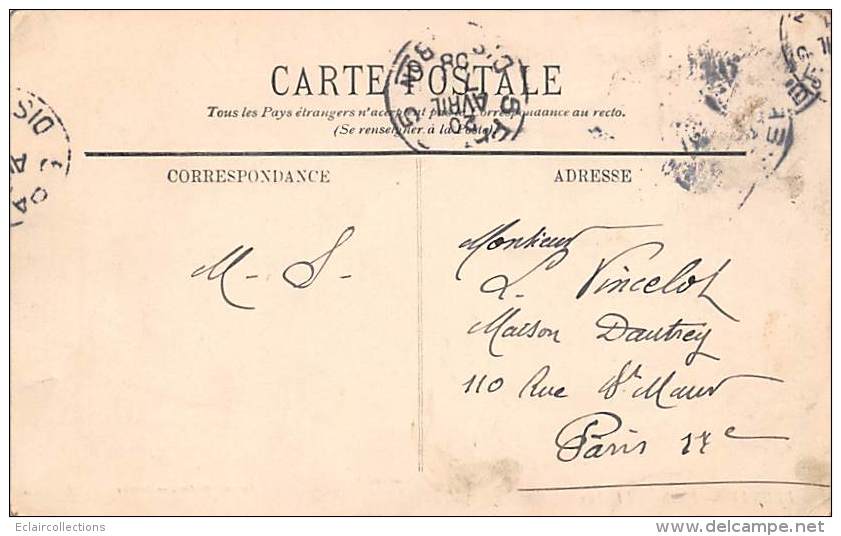 CARTE POSTALE
Tous les Pays étrangers n'acceptent pas la Correspondance au recto.
(Se renseigner à la Poste)
CORRESPONDANCE
ADRESSE
M - S -
Monsieur
L. Vincelot
Maison Dautrey
110 Rue St Maur
Paris
08
20
AVRIL
DIS
Eclaircollections
www.delcampe.net